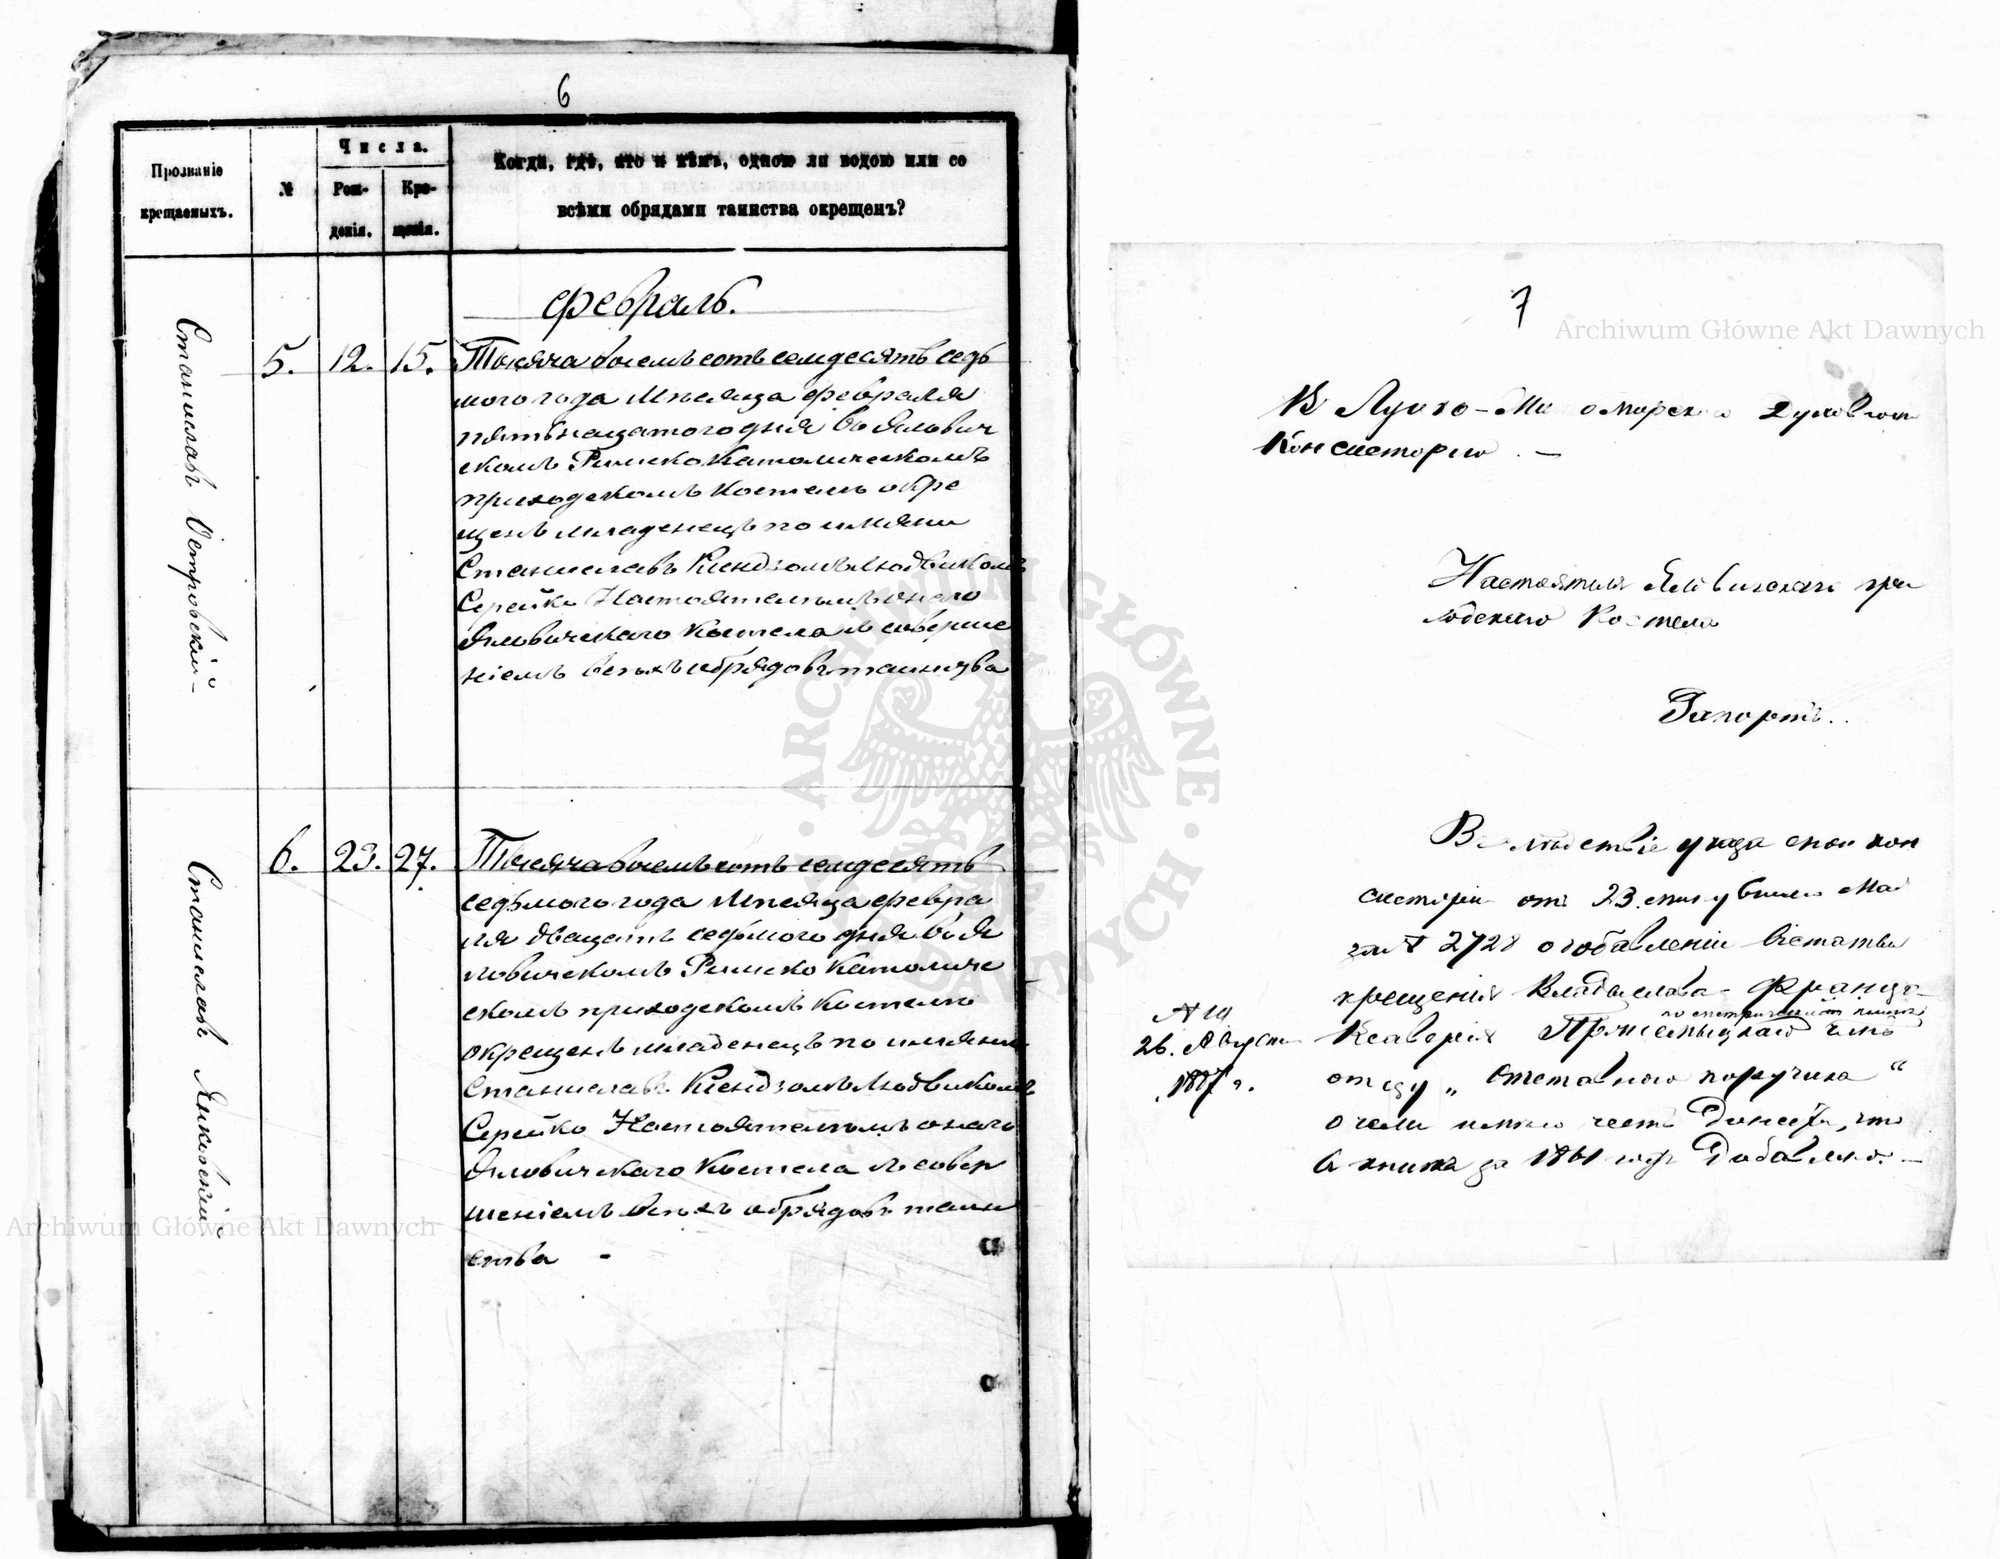 6
Прозваніе
крещаемыхъ.
№
Числа.
Рож-
денія.
Кре-
щенія.
Когда, гдѣ, кто и кѣмъ, одною ли водою или со
всѣми обрядами таинства окрещенъ?
Февраль.
Станиславъ Петровскій
5. 12. 15.
Тысяча восемьсотъ семдесятъ седь
мого года Мѣсяца февраля
пятьнацатого дня во Ялович
скомъ Римско Католическомъ
приходскомъ Костелѣ окре
щенъ младенецъ по имяни
Станиславъ Ксендзомъ Людвикомъ
Серейко Настоятелемъ онаго
Яловичскаго Костела съ соверше
ніемъ всѣхъ обрядовъ таинства
Станиславъ Янковскій
6. 23. 27.
Тысяча восемьсотъ семдесятъ
седьмого года Мѣсяца февра
ля двацать седьмого дня во Я
ловичскомъ Римско Католиче
скомъ приходскомъ Костелѣ
окрещенъ младенецъ по имяни
Станиславъ Ксендзомъ Людвикомъ
Серейко Настоятелемъ онаго
Яловичскаго Костела съ совер
шеніемъ всѣхъ обрядовъ таин
ства -
7
В Луцко-Житомирскую Духовную
Консисторію. -
Настоятеля Яловичскаго при
ходскаго Костела
Рапортъ.
Вслѣдствіе указа оной кон
систоріи отъ 23 Мая
за № 2728 о добавленіи въ статьи
крещенія Владыслава-Франца
Ксаверія
отцу „Отставного поручика“
о чемъ имѣю честь Донести, что
в книгѣ за 1861 годъ Добавлено. -
26. Августа
1887 г.
Archiwum Główne Akt Dawnych
Archiwum Główne Akt Dawnych
ARCHIWUM GŁÓWNE AKT DAWNYCH